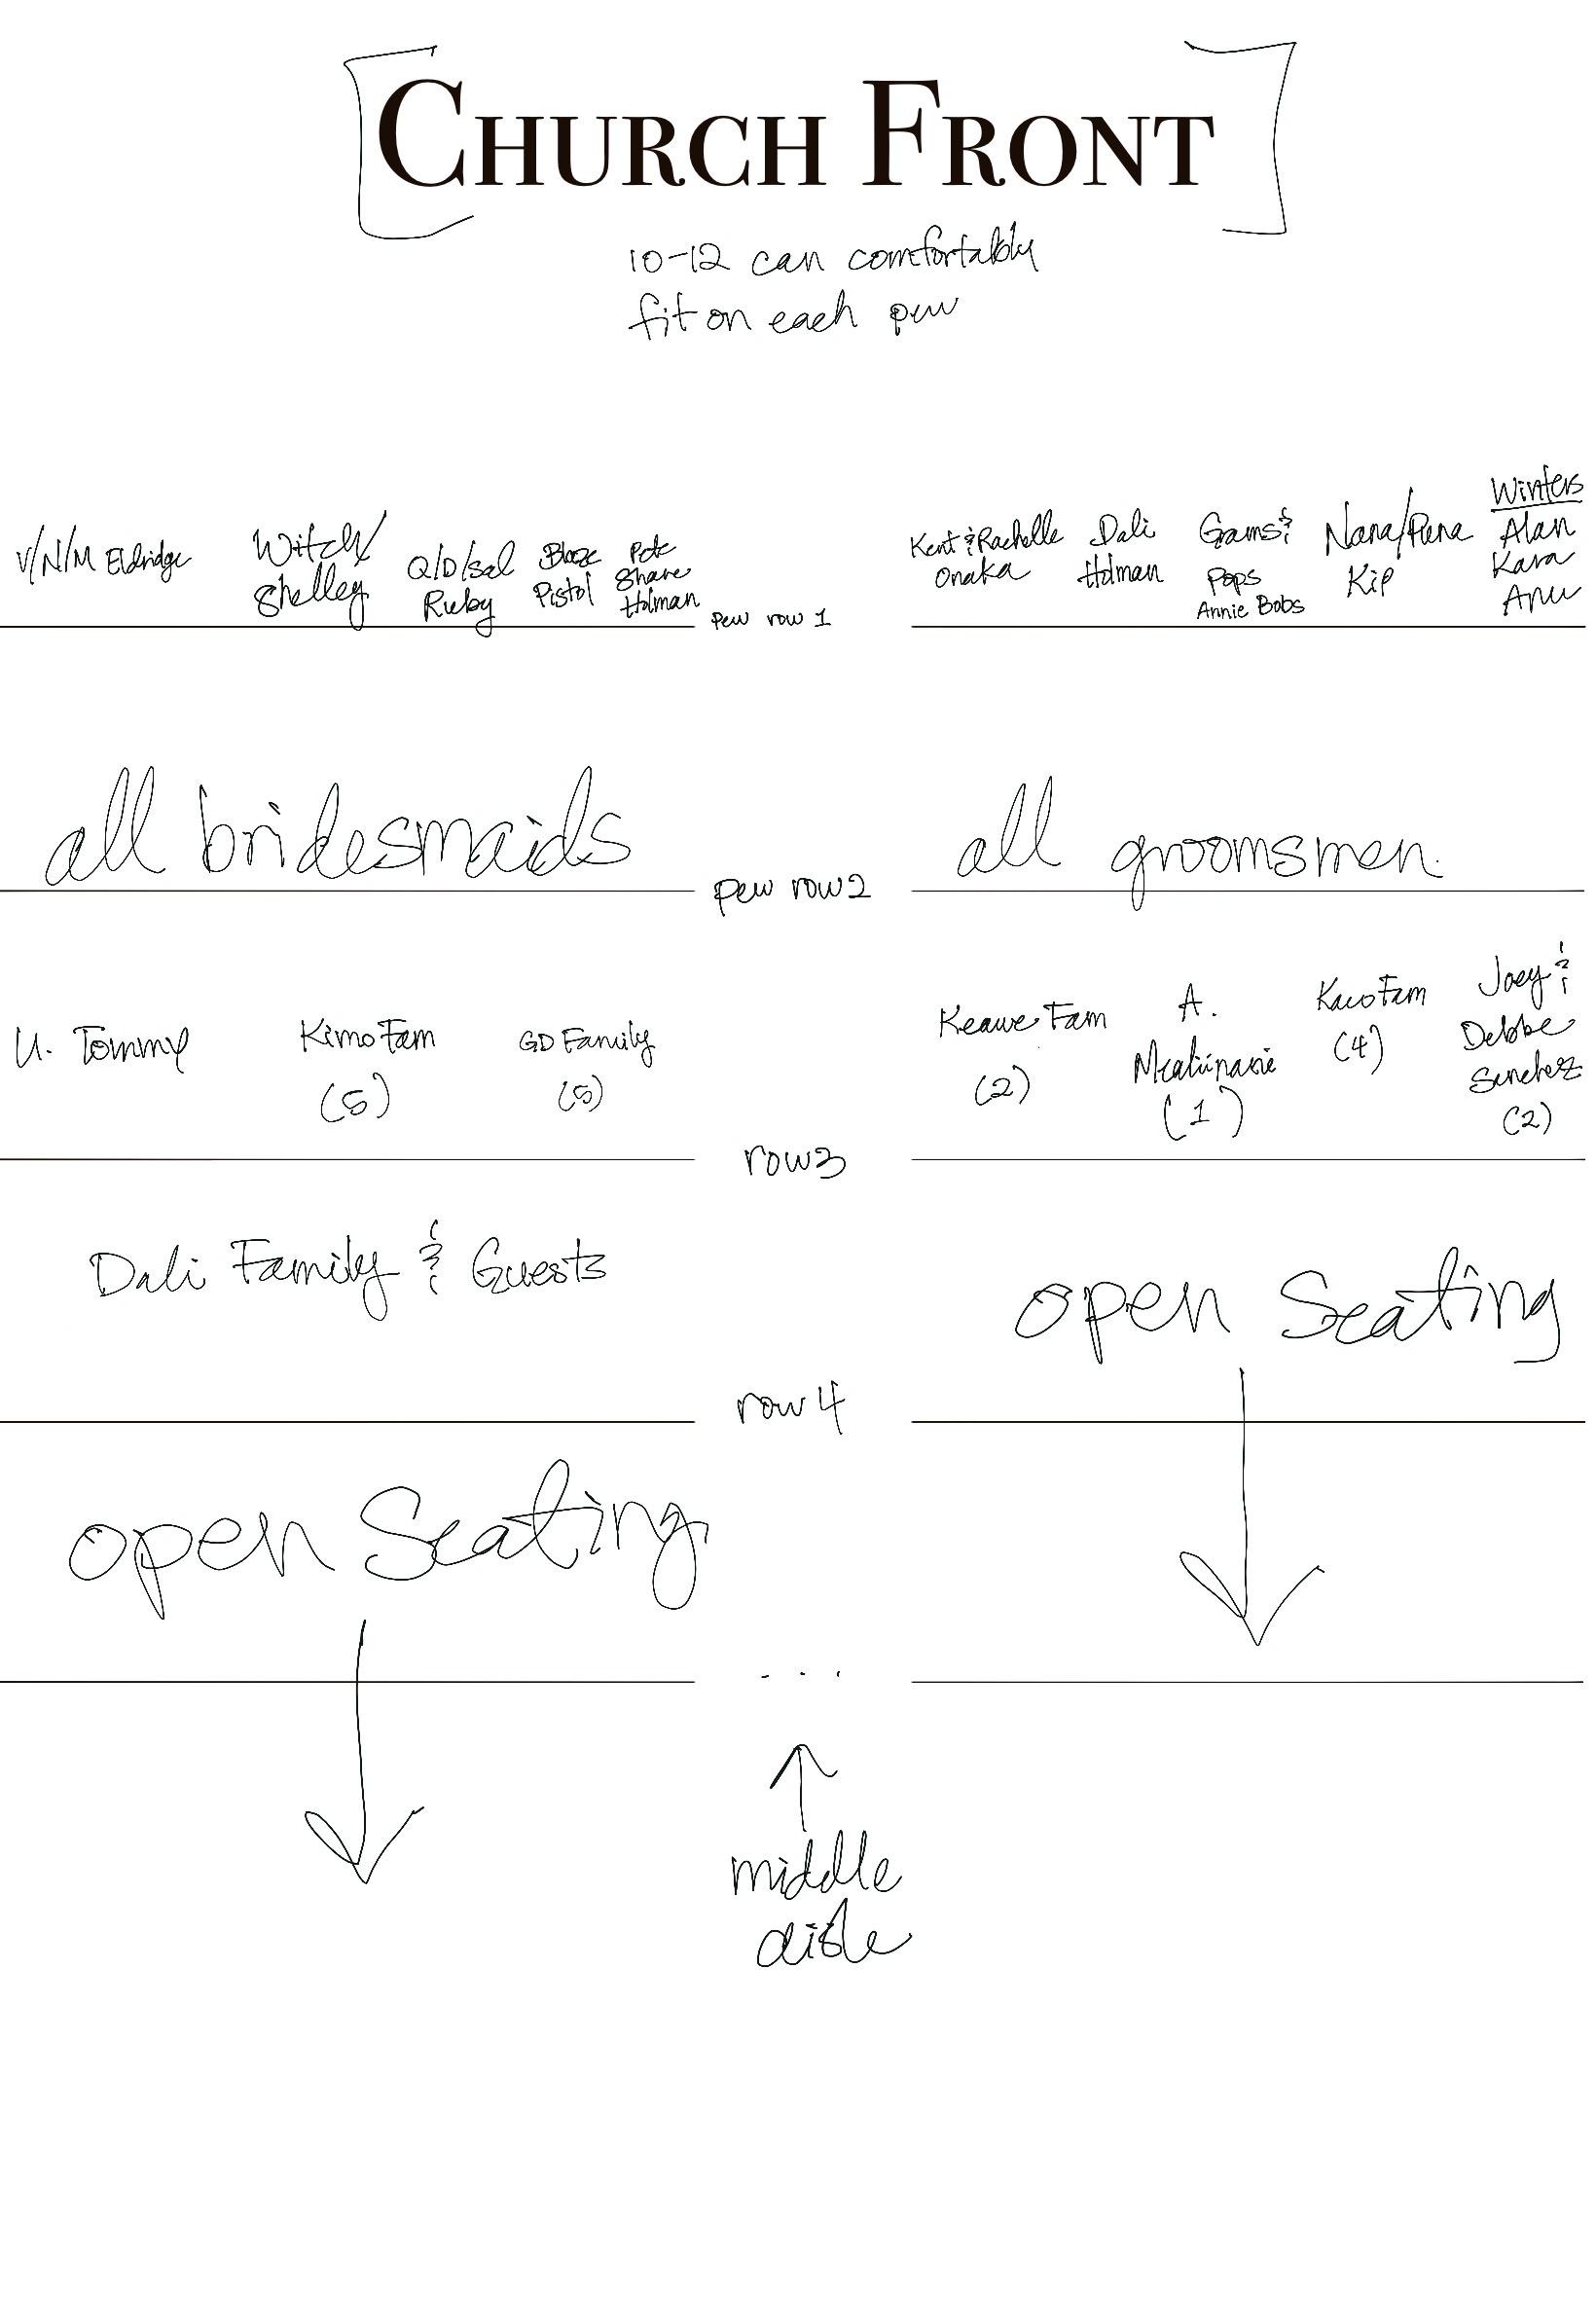 CHURCH FRONT
10-12 can comfortably
fit on each pew
V/N/M Eldridge
Witch/
Shelley
Q/D/Sal
Ruby
Blaze
Pistol
Pete
Shane
Holman
pew row 1
Kent & Rachelle
Onaka
Dali
Holman
Grams &
Pops
Annie Bobs
Nana/
Kip
Winters
Alan
Kara
pew row 2
all bridesmaids
all groomsmen
U. Tommy
Kimo Fam
(5)
GD Family
(5)
row 3
Keawe Fam
(2)
A.
(1)
Fam
(4)
Joey &
Debbe
Sanchez
(2)
Dali Family & Guests
row 4
open Seating
open Seating
...
middle
aisle